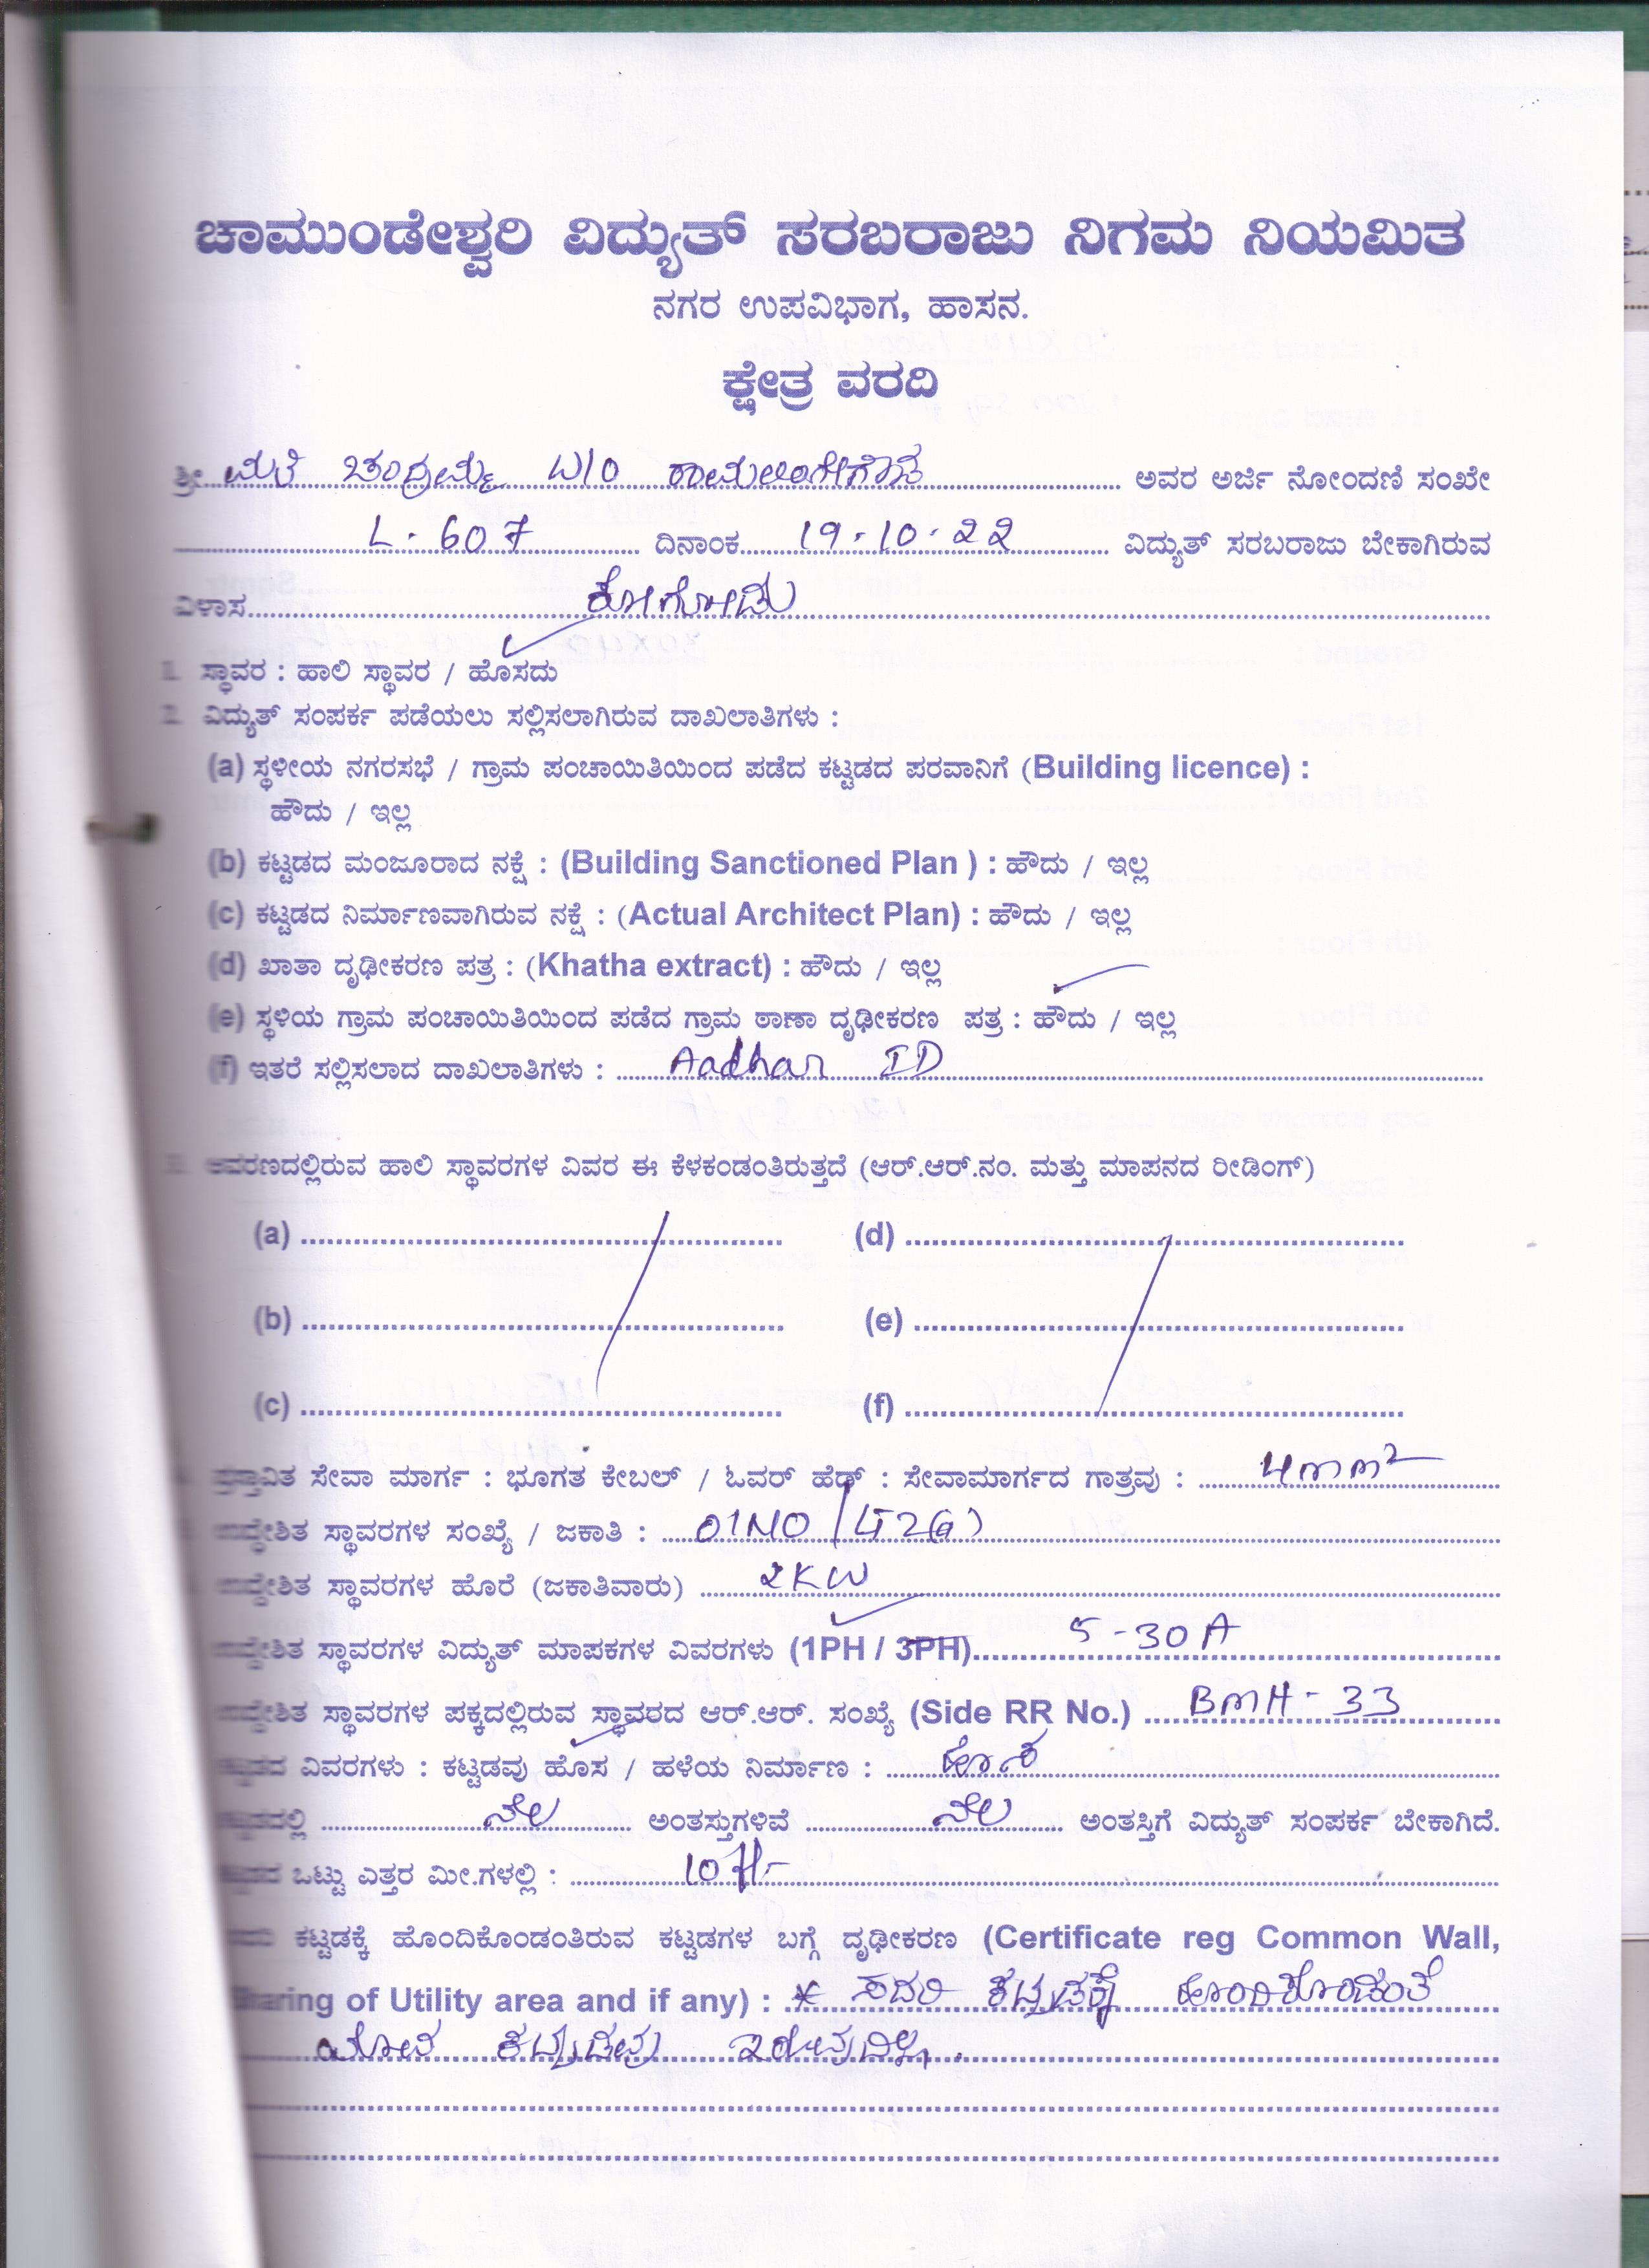 ಚಾಮುಂಡೇಶ್ವರಿ ವಿದ್ಯುತ್ ಸರಬರಾಜು ನಿಗಮ ನಿಯಮಿತ
ನಗರ ಉಪವಿಭಾಗ, ಹಾಸನ.
ಕ್ಷೇತ್ರ ವರದಿ
ಶ್ರೀ ಮತಿ ಚಂದ್ರಮ್ಮ W/O ರಾಮಲಿಂಗೇಗೌಡ ಅವರ ಅರ್ಜಿ ನೋಂದಣಿ ಸಂಖೇ
L-607 ದಿನಾಂಕ 19-10-22 ವಿದ್ಯುತ್ ಸರಬರಾಜು ಬೇಕಾಗಿರುವ
ವಿಳಾಸ ಕೋಗೋಡು
1. ಸ್ಥಾವರ : ಹಾಲಿ ಸ್ಥಾವರ / ಹೊಸದು
2. ವಿದ್ಯುತ್ ಸಂಪರ್ಕ ಪಡೆಯಲು ಸಲ್ಲಿಸಲಾಗಿರುವ ದಾಖಲಾತಿಗಳು :
(a) ಸ್ಥಳೀಯ ನಗರಸಭೆ / ಗ್ರಾಮ ಪಂಚಾಯಿತಿಯಿಂದ ಪಡೆದ ಕಟ್ಟಡದ ಪರವಾನಿಗೆ (Building licence) :
ಹೌದು / ಇಲ್ಲ
(b) ಕಟ್ಟಡದ ಮಂಜೂರಾದ ನಕ್ಷೆ : (Building Sanctioned Plan ) : ಹೌದು / ಇಲ್ಲ
(c) ಕಟ್ಟಡದ ನಿರ್ಮಾಣವಾಗಿರುವ ನಕ್ಷೆ : (Actual Architect Plan) : ಹೌದು / ಇಲ್ಲ
(d) ಖಾತಾ ದೃಢೀಕರಣ ಪತ್ರ : (Khatha extract) : ಹೌದು / ಇಲ್ಲ
(e) ಸ್ಥಳಿಯ ಗ್ರಾಮ ಪಂಚಾಯಿತಿಯಿಂದ ಪಡೆದ ಗ್ರಾಮ ಠಾಣಾ ದೃಢೀಕರಣ ಪತ್ರ : ಹೌದು / ಇಲ್ಲ
(f) ಇತರೆ ಸಲ್ಲಿಸಲಾದ ದಾಖಲಾತಿಗಳು : Aadhar ID
ಆವರಣದಲ್ಲಿರುವ ಹಾಲಿ ಸ್ಥಾವರಗಳ ವಿವರ ಈ ಕೆಳಕಂಡಂತಿರುತ್ತದೆ (ಆರ್.ಆರ್.ನಂ. ಮತ್ತು ಮಾಪನದ ರೀಡಿಂಗ್)
(a) (d)
(b) (e)
(c) (f)
ಪ್ರಸ್ತಾವಿತ ಸೇವಾ ಮಾರ್ಗ : ಭೂಗತ ಕೇಬಲ್ / ಓವರ್ ಹೆಡ್ : ಸೇವಾಮಾರ್ಗದ ಗಾತ್ರವು : 4mm²
ಉದ್ದೇಶಿತ ಸ್ಥಾವರಗಳ ಸಂಖ್ಯೆ / ಜಕಾತಿ : 01NO / LT2(a)
ಉದ್ದೇಶಿತ ಸ್ಥಾವರಗಳ ಹೊರೆ (ಜಕಾತಿವಾರು) 2KW
ಉದ್ದೇಶಿತ ಸ್ಥಾವರಗಳ ವಿದ್ಯುತ್ ಮಾಪಕಗಳ ವಿವರಗಳು (1PH / 3PH) 5-30A
ಉದ್ದೇಶಿತ ಸ್ಥಾವರಗಳ ಪಕ್ಕದಲ್ಲಿರುವ ಸ್ಥಾವರದ ಆರ್.ಆರ್. ಸಂಖ್ಯೆ (Side RR No.) BMH-33
ವಿವರಗಳು : ಕಟ್ಟಡವು ಹೊಸ / ಹಳೆಯ ನಿರ್ಮಾಣ : ಹೊಸ
ನೆಲ ಅಂತಸ್ತುಗಳಿವೆ ನೆಲ ಅಂತಸ್ತಿಗೆ ವಿದ್ಯುತ್ ಸಂಪರ್ಕ ಬೇಕಾಗಿದೆ.
ಒಟ್ಟು ಎತ್ತರ ಮೀ.ಗಳಲ್ಲಿ : 10 ft-
ಕಟ್ಟಡಕ್ಕೆ ಹೊಂದಿಕೊಂಡಂತಿರುವ ಕಟ್ಟಡಗಳ ಬಗ್ಗೆ ದೃಢೀಕರಣ (Certificate reg Common Wall,
Sharing of Utility area and if any) : * ಸದರಿ ಕಟ್ಟಡಕ್ಕೆ ಹೊಂದಿಕೊಂಡಂತೆ
ಯಾವ ಕಟ್ಟಡವು ಇರುವುದಿಲ್ಲ.